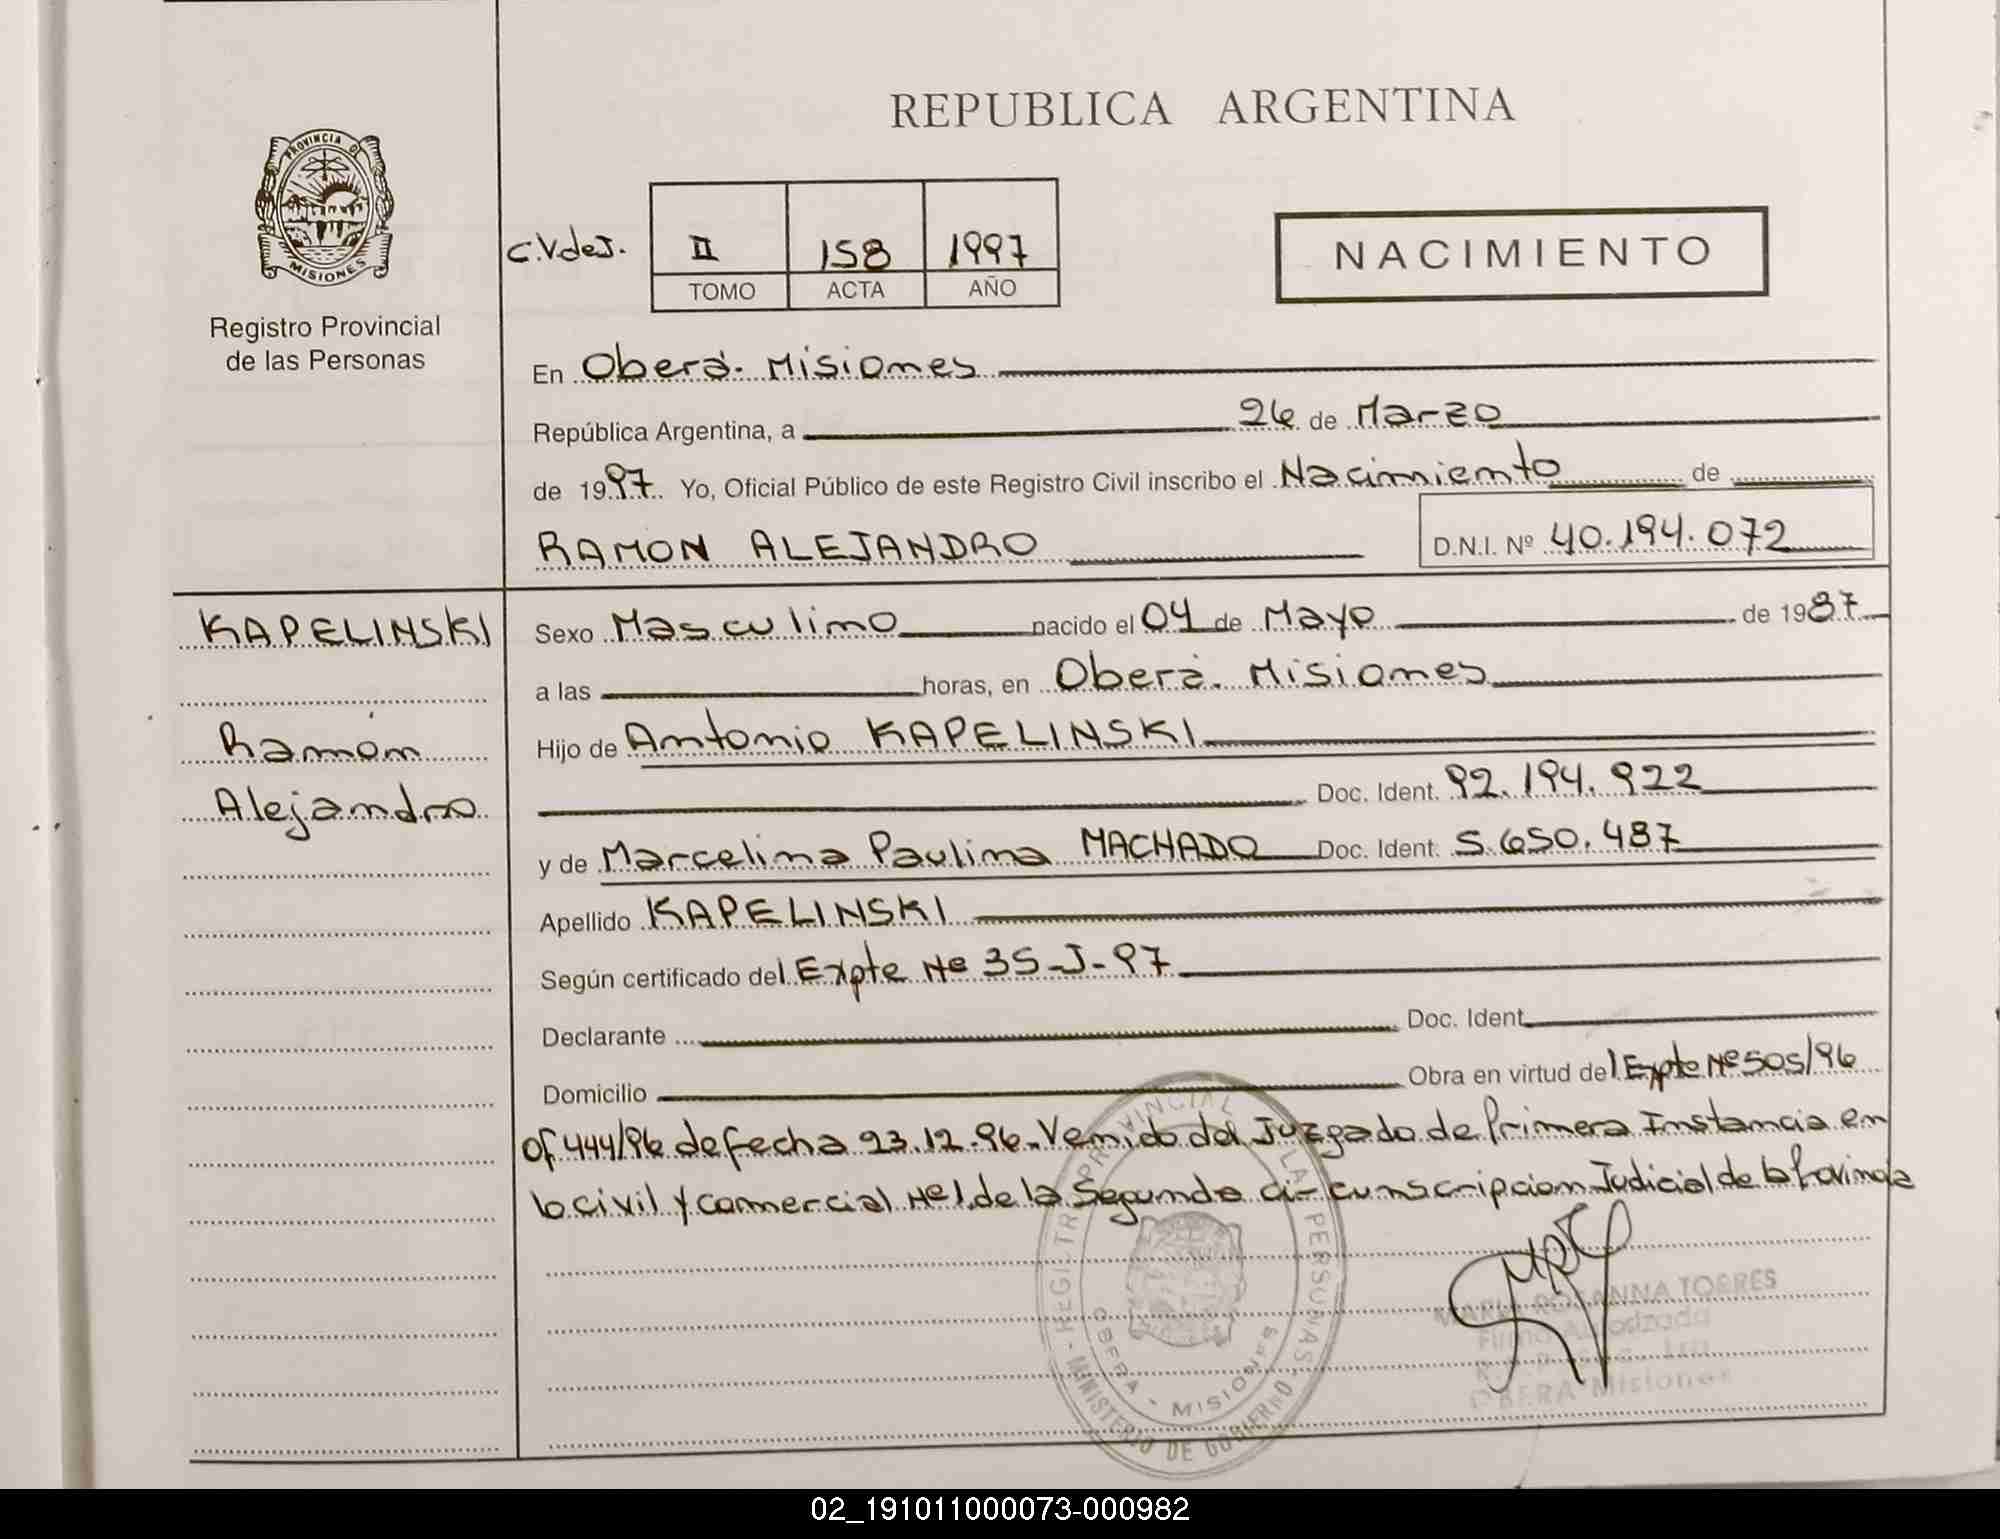 REPUBLICA ARGENTINA
PROVINCIA DE
MISIONES
Registro Provincial
de las Personas
C.VdeJ.
II 158 1997
TOMO ACTA AÑO
NACIMIENTO
En Oberá. Misiones
República Argentina, a 26 de Marzo
de 1997. Yo, Oficial Público de este Registro Civil inscribo el Nacimiento de
RAMON ALEJANDRO
D.N.I. Nº 40.194.072
KAPELINSKI
Ramón
Alejandro
Sexo Masculino nacido el 04 de Mayo de 1987
a las horas, en Oberá. Misiones
Hijo de Antonio KAPELINSKI
Doc. Ident. 92.194.922
y de Marcelina Paulina MACHADO Doc. Ident. 5.650.487
Apellido KAPELINSKI
Según certificado del Expte Nº 35-J-97
Declarante Doc. Ident.
Domicilio Obra en virtud del Expte Nº 505/96
Of 444/96 de fecha 23.12.96. Venido del Juzgado de Primera Instancia en
lo civil y comercial Nº 1 de la Segunda circunscripcion Judicial de la Provincia
REGISTRO PROVINCIAL DE LAS PERSONAS
MINISTERIO DE GOBIERNO
OBERA - MISIONES
MARIA ROSANNA TORRES
Firma Autorizada
OBERA Misiones
02_191011000073-000982